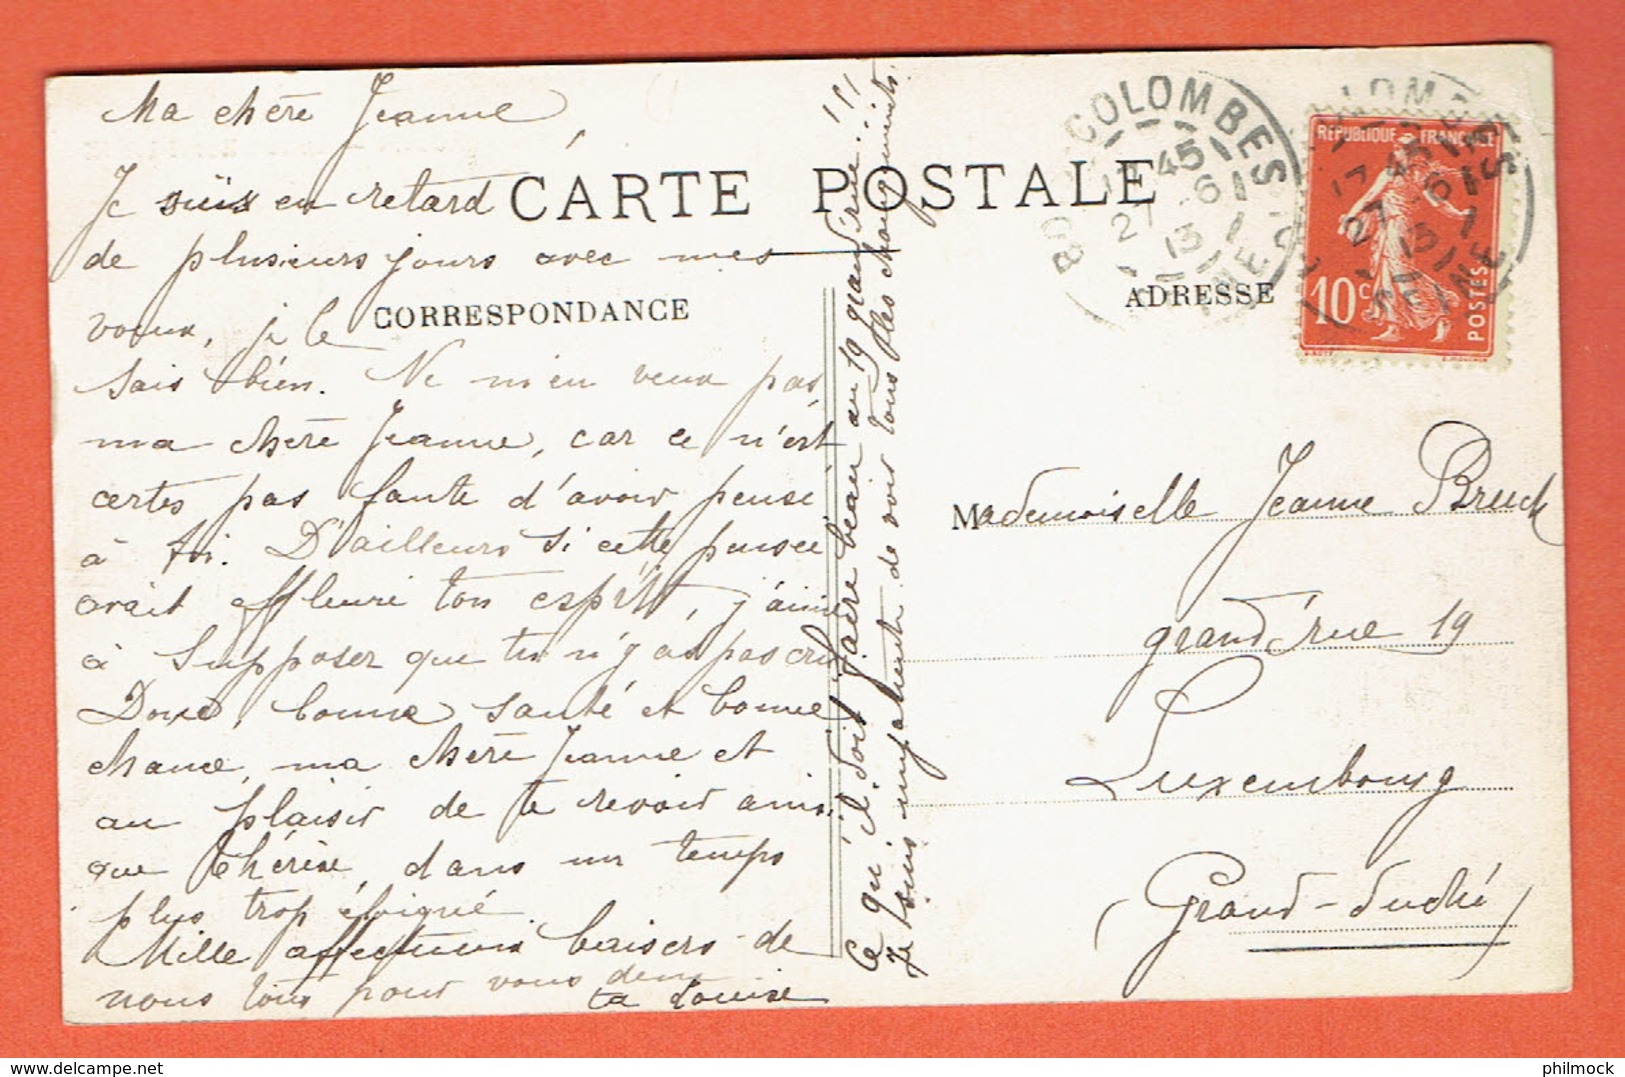 Ma chère Jeanne
Je suis en retard
de plusieurs jours avec mes
voeux, je le
sais bien. Ne m'en veux pas,
ma chère Jeanne, car ce n'est
certes pas faute d'avoir pensé
à toi. D'ailleurs si cette pensée
avait effleuré ton esprit, j'aime
à supposer que tu n'y as pas cru
Donc, bonne santé et bonne
chance, ma chère Jeanne et
au plaisir de te revoir ainsi
que Thérèse, dans un temps
plus trop éloigné.
Mille affectueux baisers de
nous tous pour vous deux
ta Louise
Ce qu'il doit faire beau au 19 grand'rue!!!
Je suis impatiente de voir tous les changements.
CARTE POSTALE
CORRESPONDANCE
ADRESSE
COLOMBES
17 45
27 6
13
SEINE
RÉPUBLIQUE FRANÇAISE
10 c
POSTES
Mademoiselle Jeanne Bruck
grand'rue 19
Luxembourg
(Grand-duché)
philmock.com